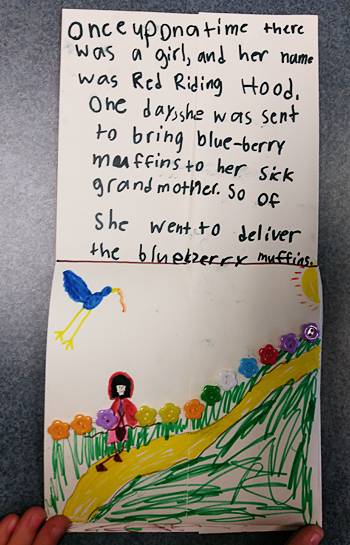 Once upon a time there
was a girl, and her name
was Red Riding Hood.
One day, she was sent
to bring blue-berry
muffins to her sick
grandmother. So of
she went to deliver
the blueberry muffins.